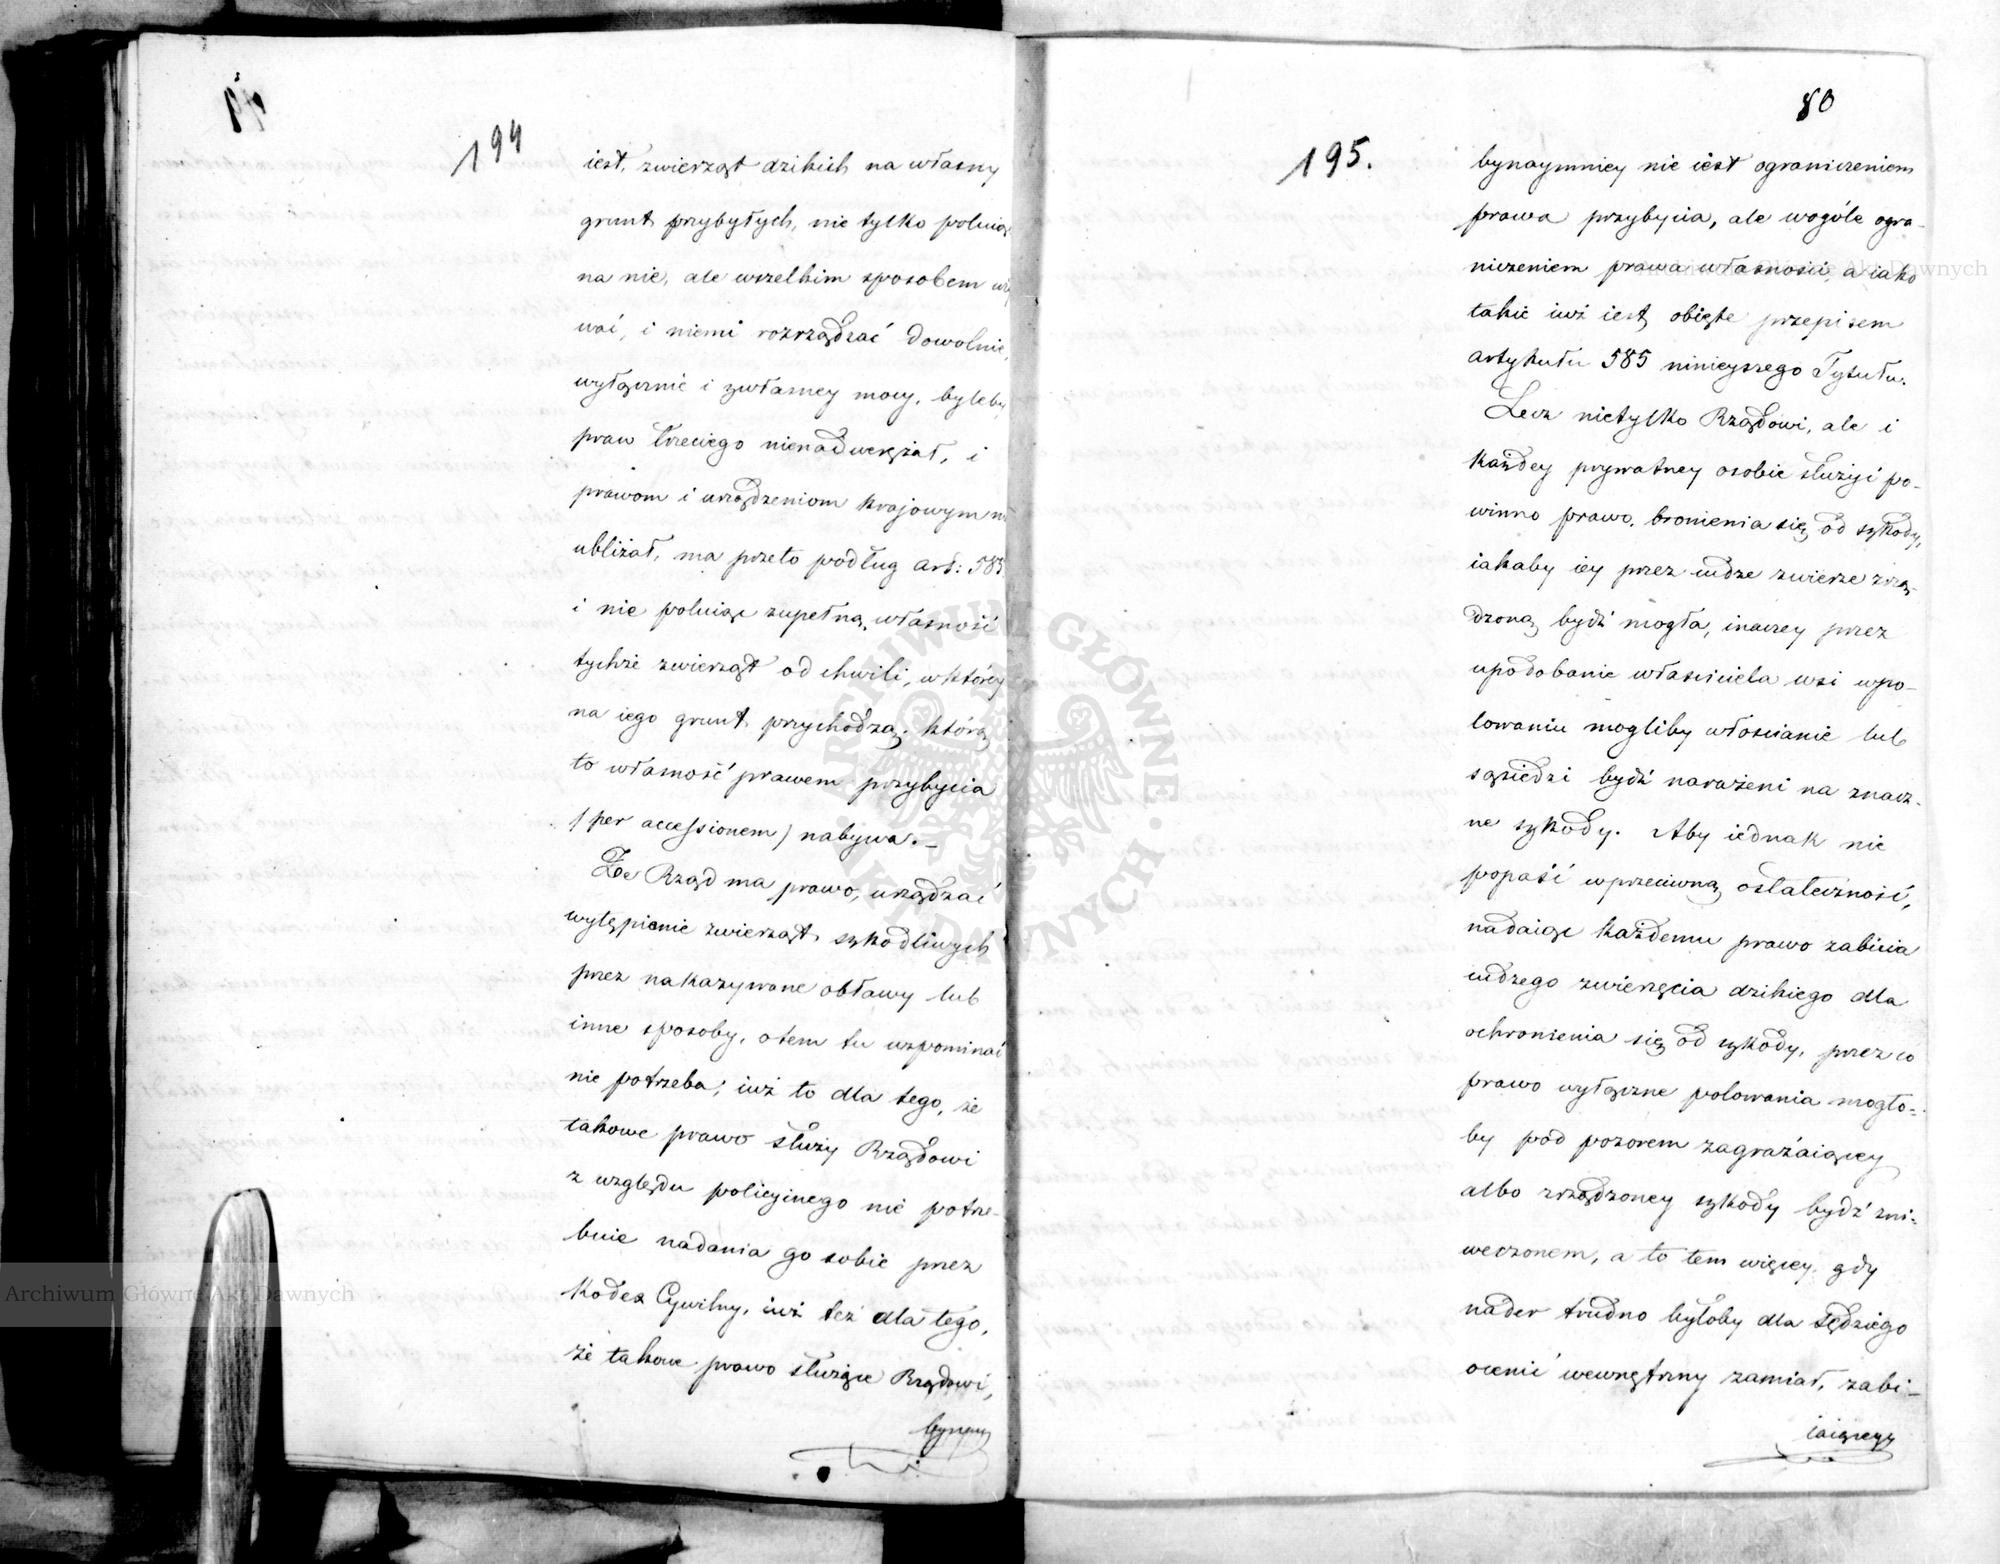 194
iest, zwierząt dzikich na własny
grunt przybyłych, nie tylko poluiąc
na nie, ale wszelkim sposobem
wać, i niemi rozrządzać dowolnie,
wyłącznie i zwłasney mocy, byleby
praw trzeciego nienadweręzał, i
prawom i urządzeniom krajowym
ubliżał, ma przeto podług art: 585
i nie poluiąc zupełną, własność
tychże zwierząt od chwili, w którey
na iego grunt przychodzą; którą
to własność prawem przybycia
/per accessionem/ nabywa.–
Że Rząd ma prawo, urządzać
wytępienie zwierząt szkodliwych
przez nakazywane obławy lub
inne sposoby, otem tu wspominać
nie potrzeba; iuż to dla tego, że
takowe prawo służy Rządowi
z względu policyinego nie potrze-
buie nadania go sobie przez
Kodex Cywilny, iuż też dla tego,
że takowe prawo służące Rządowi,
bynaym
80
195.
bynaymniey nie iest ograniczeniem
prawa przybycia, ale wogóle ogra-
niczeniem prawa własności, a iako
takie iuż iest obięte przepisem
artykułu 585 ninieyszego Tytułu.
Lecz nietylko Rządowi, ale i
każdey prywatney osobie służyć po-
winno prawo, bronienia się od szkody,
iakaby iey przez cudze zwierze zrzą-
dzoną bydź mogła, inaczey przez
upodobanie właściciela wsi wpo-
lowaniu mogliby włościanie lub
sąsiedzi bydź narażeni na znacz-
ne szkody. Aby iednak nie
popaść wprzeciwną ostateczność,
nadaiąc każdemu prawo zabicia
cudzego zwierzęcia dzikiego dla
ochronienia się od szkody, przez co
prawo wyłączne polowania mogło-
by pod pozorem zagrażaiącey
albo zrządzoney szkody bydź zni-
weczonem, a to tem więcey, gdy
nader trudno byłoby dla Sędziego
ocenić wewnętrzny zamiar, zabi-
iaiącego
Archiwum Główne Akt Dawnych
Archiwum Główne Akt Dawnych
ARCHIWUM GŁÓWNE AKT DAWNYCH